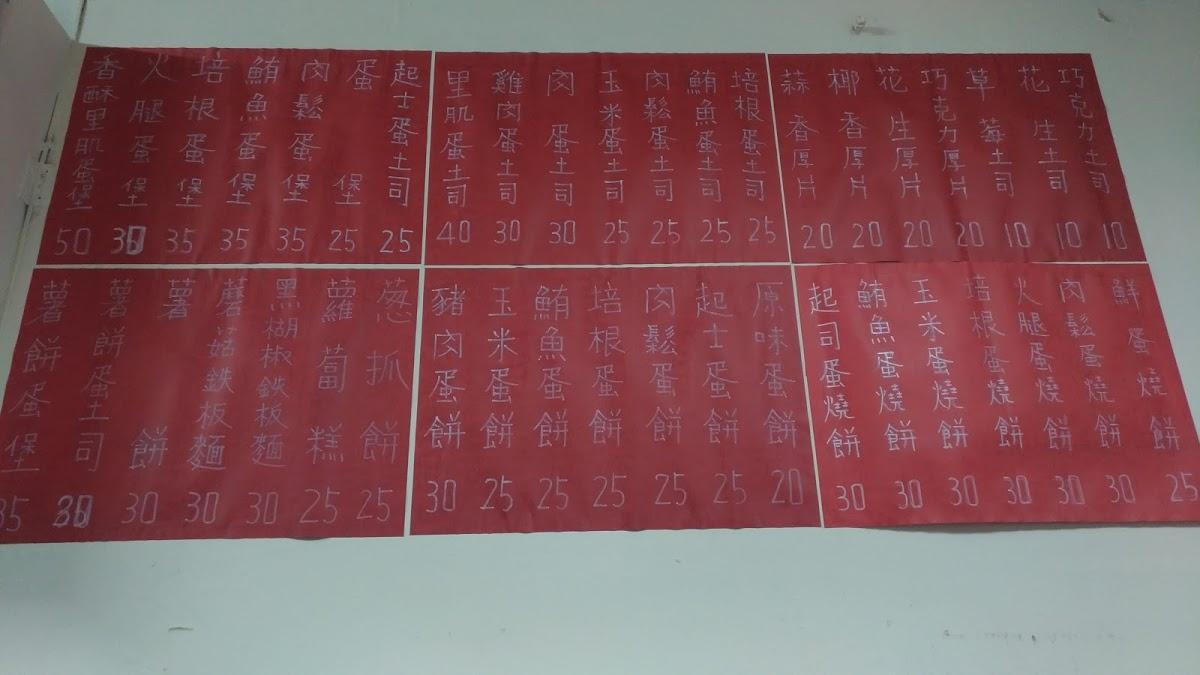 巧克力土司 10
花生土司 10
草莓土司 10
巧克力厚片 20
花生厚片 20
椰香厚片 20
蒜香厚片 20
培根蛋土司 25
鮪魚蛋土司 25
肉鬆蛋土司 25
玉米蛋土司 25
肉蛋土司 30
雞肉蛋土司 30
里肌蛋土司 40
起士蛋土司 25
蛋堡 25
肉鬆蛋堡 35
鮪魚蛋堡 35
培根蛋堡 35
火腿蛋堡
香酥里肌蛋堡 50
鮮蛋燒餅 25
肉鬆蛋燒餅 30
火腿蛋燒餅 30
培根蛋燒餅 30
玉米蛋燒餅 30
鮪魚蛋燒餅 30
起司蛋燒餅 30
原味蛋餅 20
起士蛋餅 25
肉鬆蛋餅 25
培根蛋餅 25
鮪魚蛋餅 25
玉米蛋餅 25
豬肉蛋餅 30
葱抓餅 25
蘿蔔糕 25
黑胡椒鉄板麵 30
蘑菇鉄板麵 30
薯餅 30
薯餅蛋土司
薯餅蛋堡 35